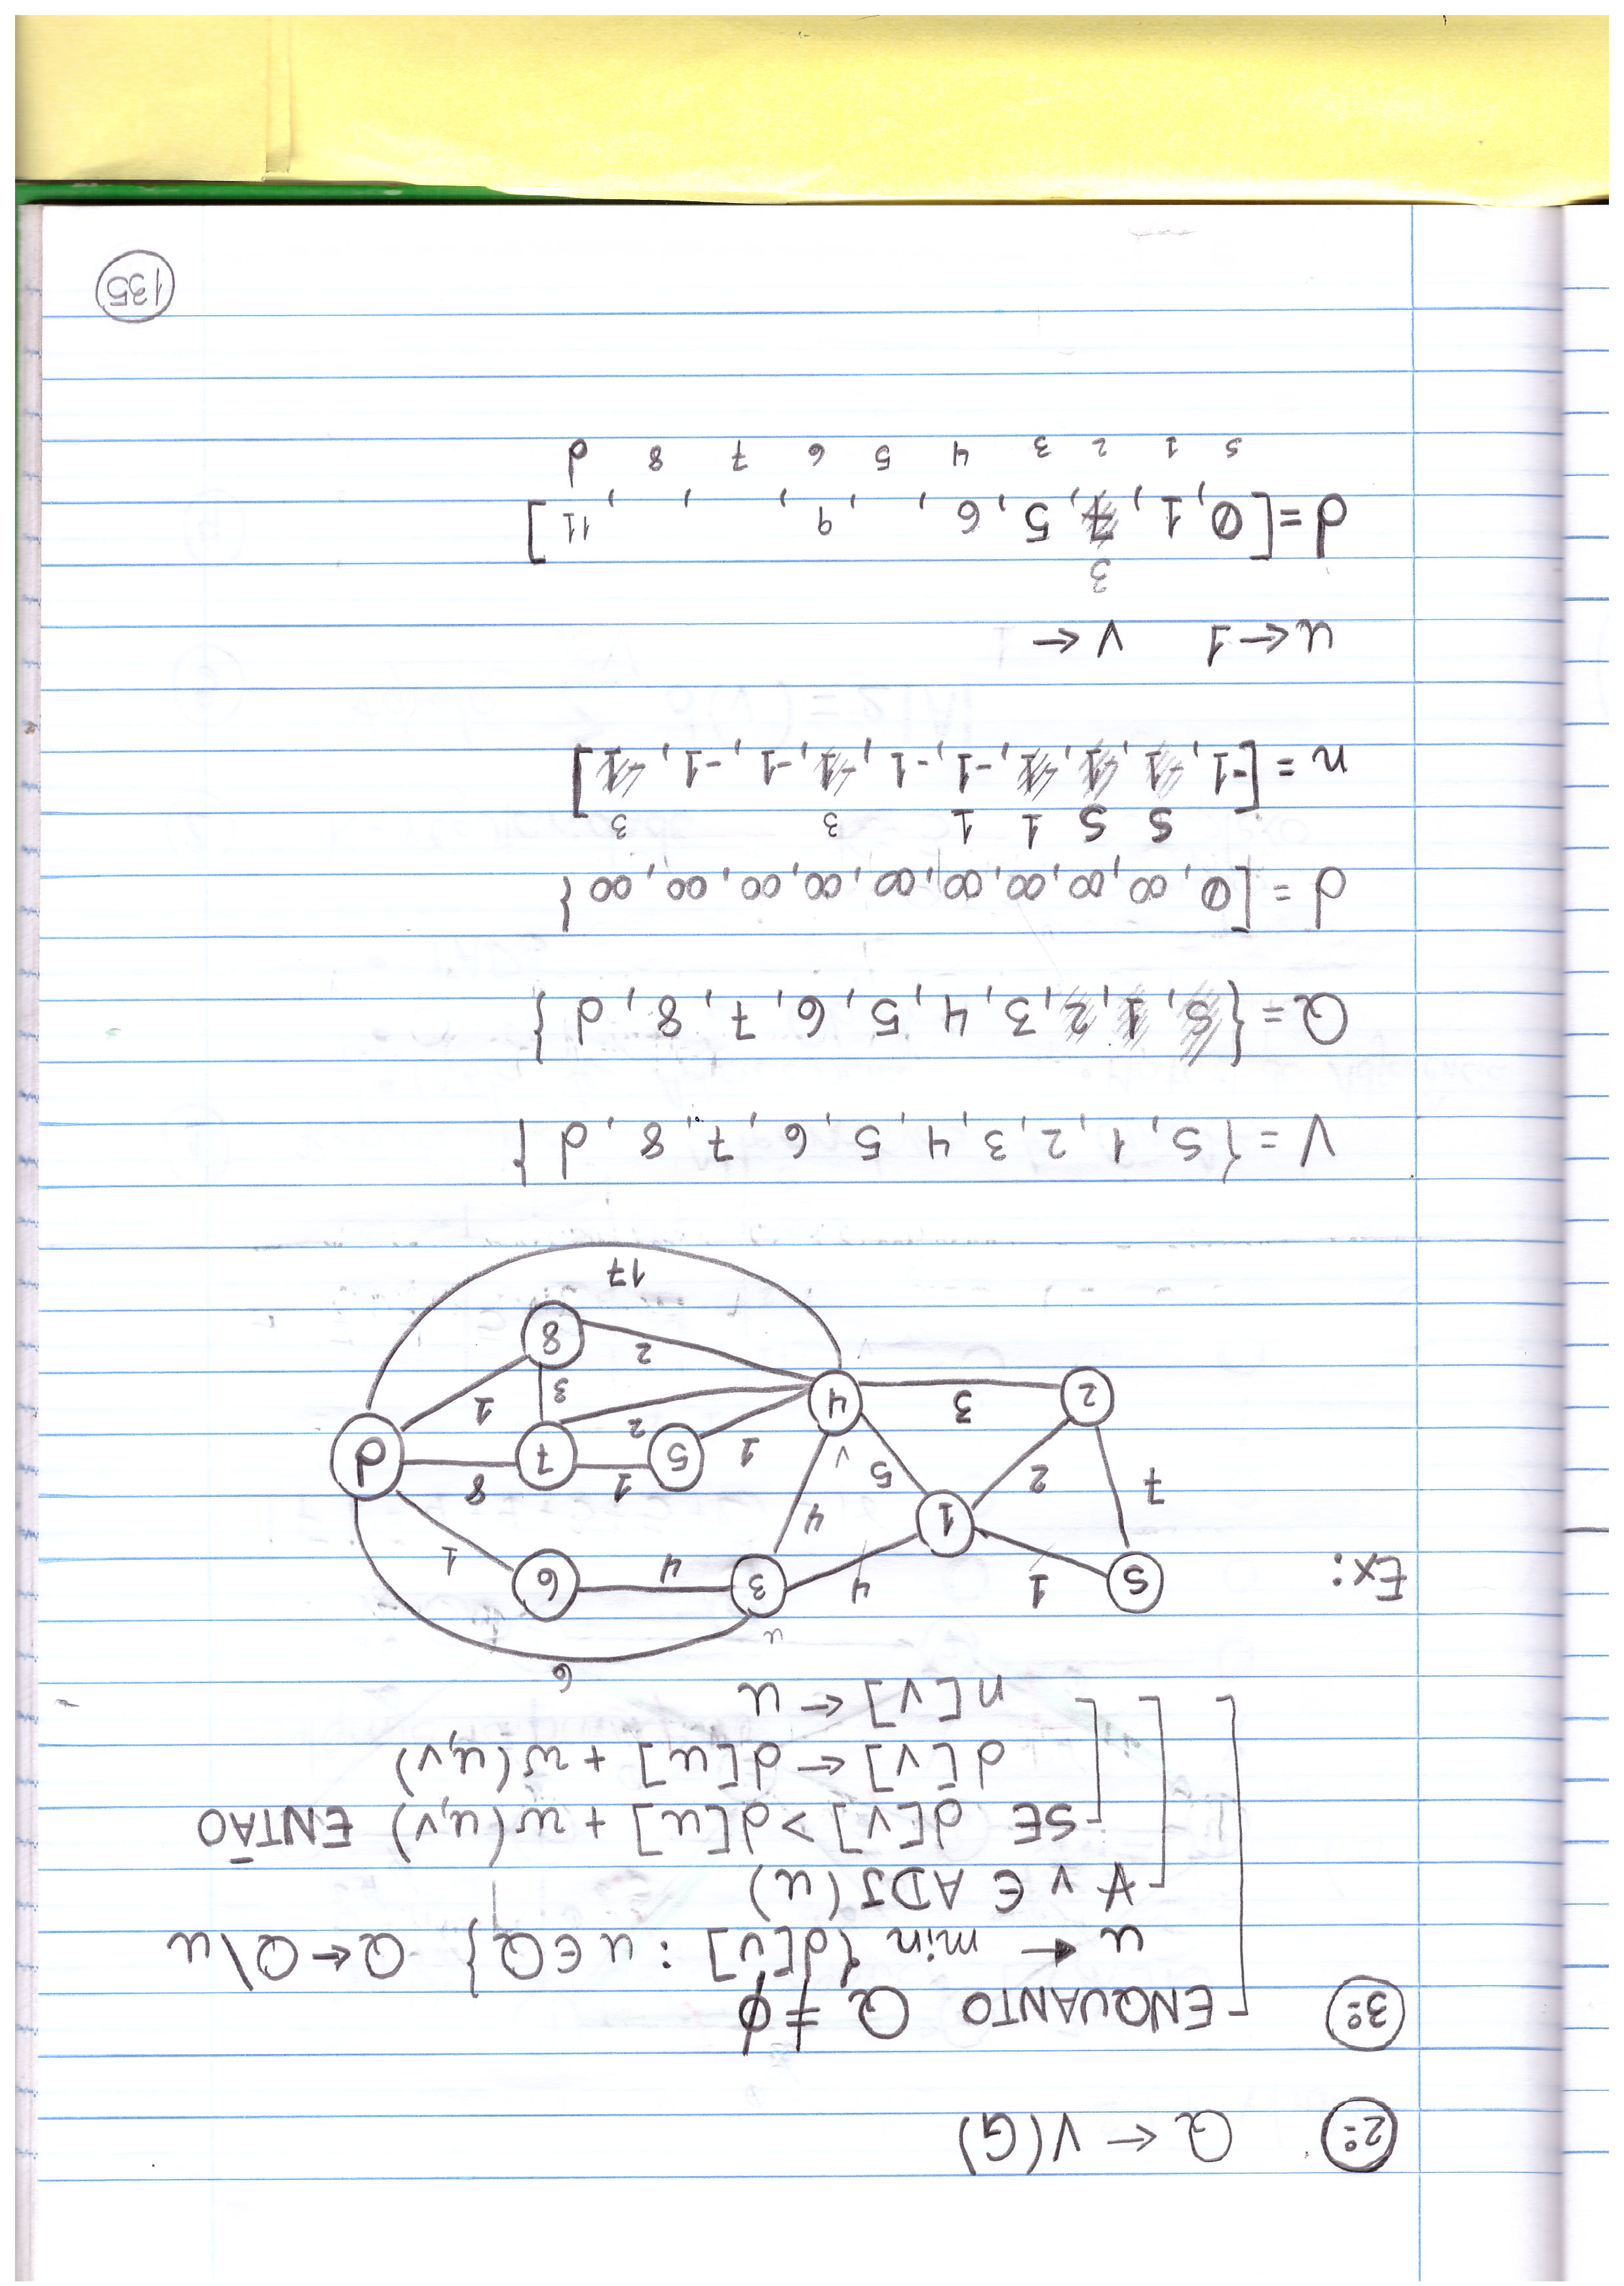 2º Q ← V(G)
3º ENQUANTO Q ≠ ∅
u ← min {d[v] : u ∈ Q} Q ← Q \ u
∀ v ∈ ADJ(u)
SE d[v] > d[u] + w(u,v) ENTÃO
d[v] ← d[u] + w(u,v)
n[v] ← u
6
u
Ex: S 1 4 3 4 6 1
1
7 2 5 4 v 1 5 1 7 8 d
2 3 4 2 3 1
2 8
17
V = {S, 1, 2, 3, 4, 5, 6, 7, 8, d}
Q = {S, 1, 2, 3, 4, 5, 6, 7, 8, d}
d = [0, ∞, ∞, ∞, ∞, ∞, ∞, ∞, ∞, ∞}
S S 1 1 3 3
n = [-1, -1, -1, -1, -1, -1, -1, -1, -1, -1]
u ← 1 v ←
3
d = [0, 1, 7, 5, 6, , 9, , , 11]
s 1 2 3 4 5 6 7 8 d
135